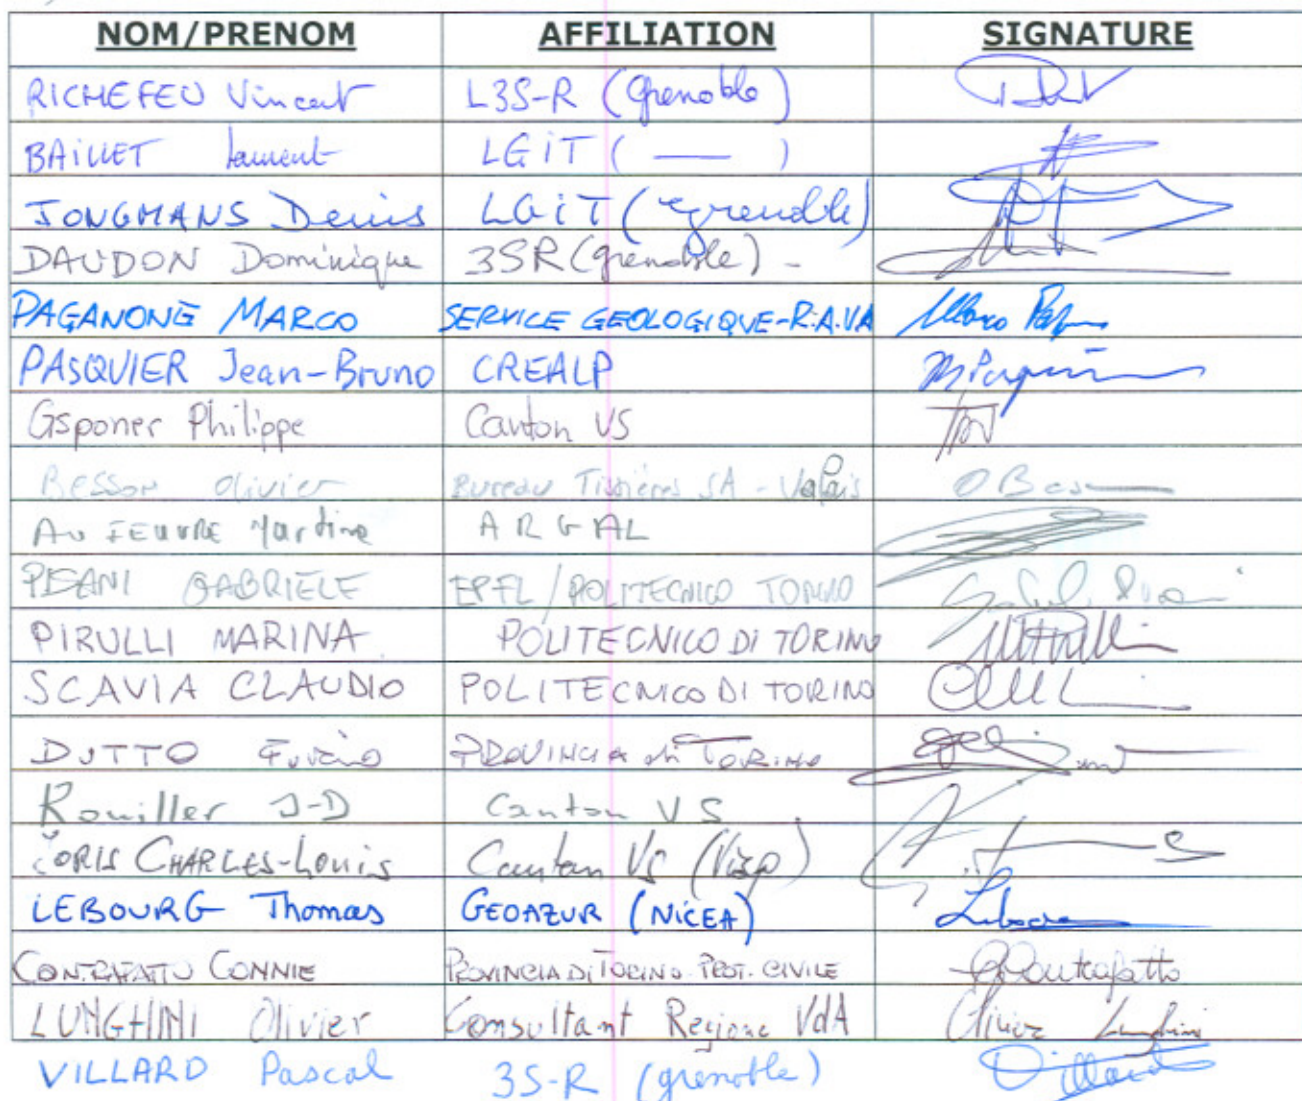 NOM/PRENOM AFFILIATION SIGNATURE
RICHEFEU Vincent L3S-R (Grenoble)
BAILLET Laurent LGiT ( — )
JONGMANS Denis LGiT (Grenoble)
DAUDON Dominique 3SR (Grenoble) -
PAGANONE MARCO SERVICE GEOLOGIQUE-R.A.VA Marco
PASQUIER Jean-Bruno CREALP
Gsponer Philippe Canton VS
BESSON Olivier Bureau Tissières SA - Valais
Martine ARGAL
PISANI GABRIELE EPFL/POLITECNICO TORINO
PIRULLI MARINA POLITECNICO DI TORINO
SCAVIA CLAUDIO POLITECNICO DI TORINO
DUTTO Furvio PROVINCIA di TORINO
Rouiller J-D Canton VS
JORIS CHARLES-Louis Canton VS (Visp)
LEBOURG Thomas GEOAZUR (NICEA)
CONTRAFATTO CONNIE PROVINCIA DI TORINO PROT. CIVILE Contrafatto
LUNGHINI Olivier Consultant Regione VdA Olivier Lunghini
VILLARD Pascal 3S-R (grenoble) Villard